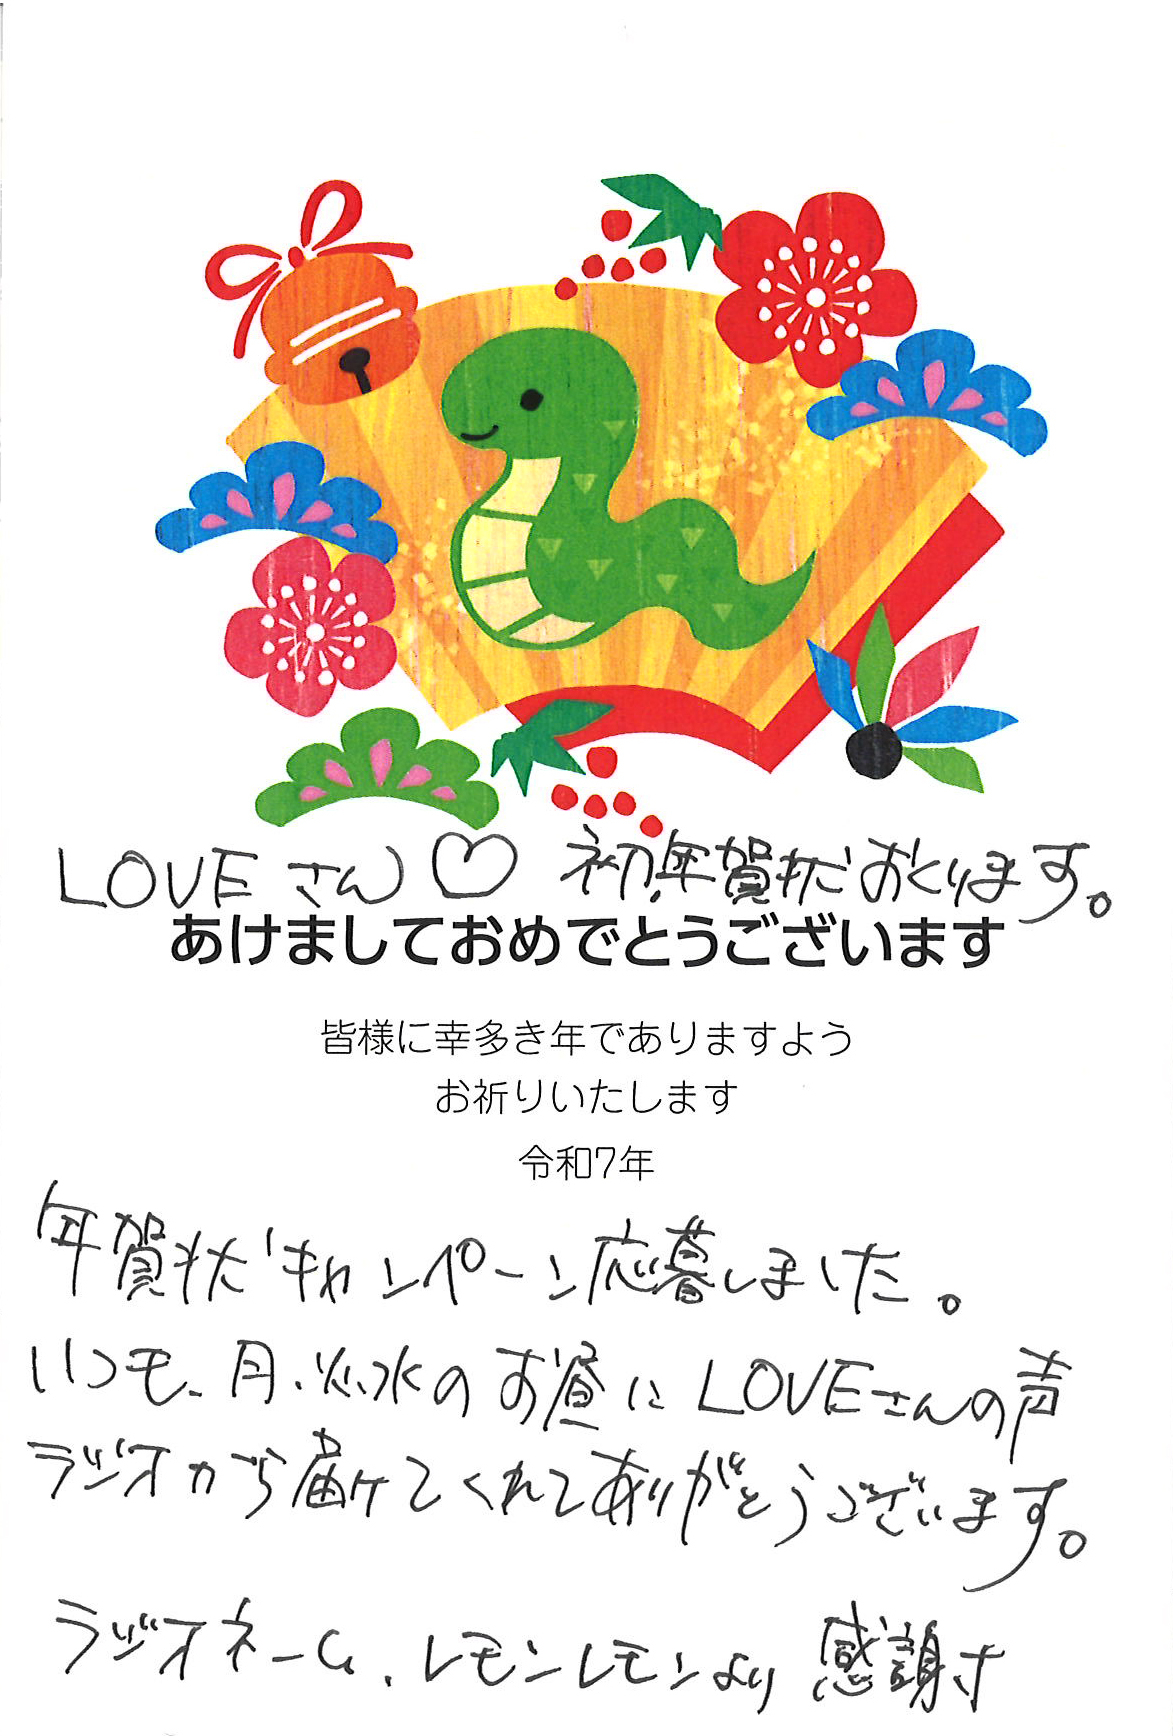 LOVEさん♡ 初年賀状おくります。
あけましておめでとうございます
皆様に幸多き年でありますよう
お祈りいたします
令和7年
年賀状キャンペーン応募しました。
いつも、月、火、水のお昼にLOVEさんの声
ラジオから届けてくれてありがとうございます。
ラジオネーム、レモンレモンより 感謝